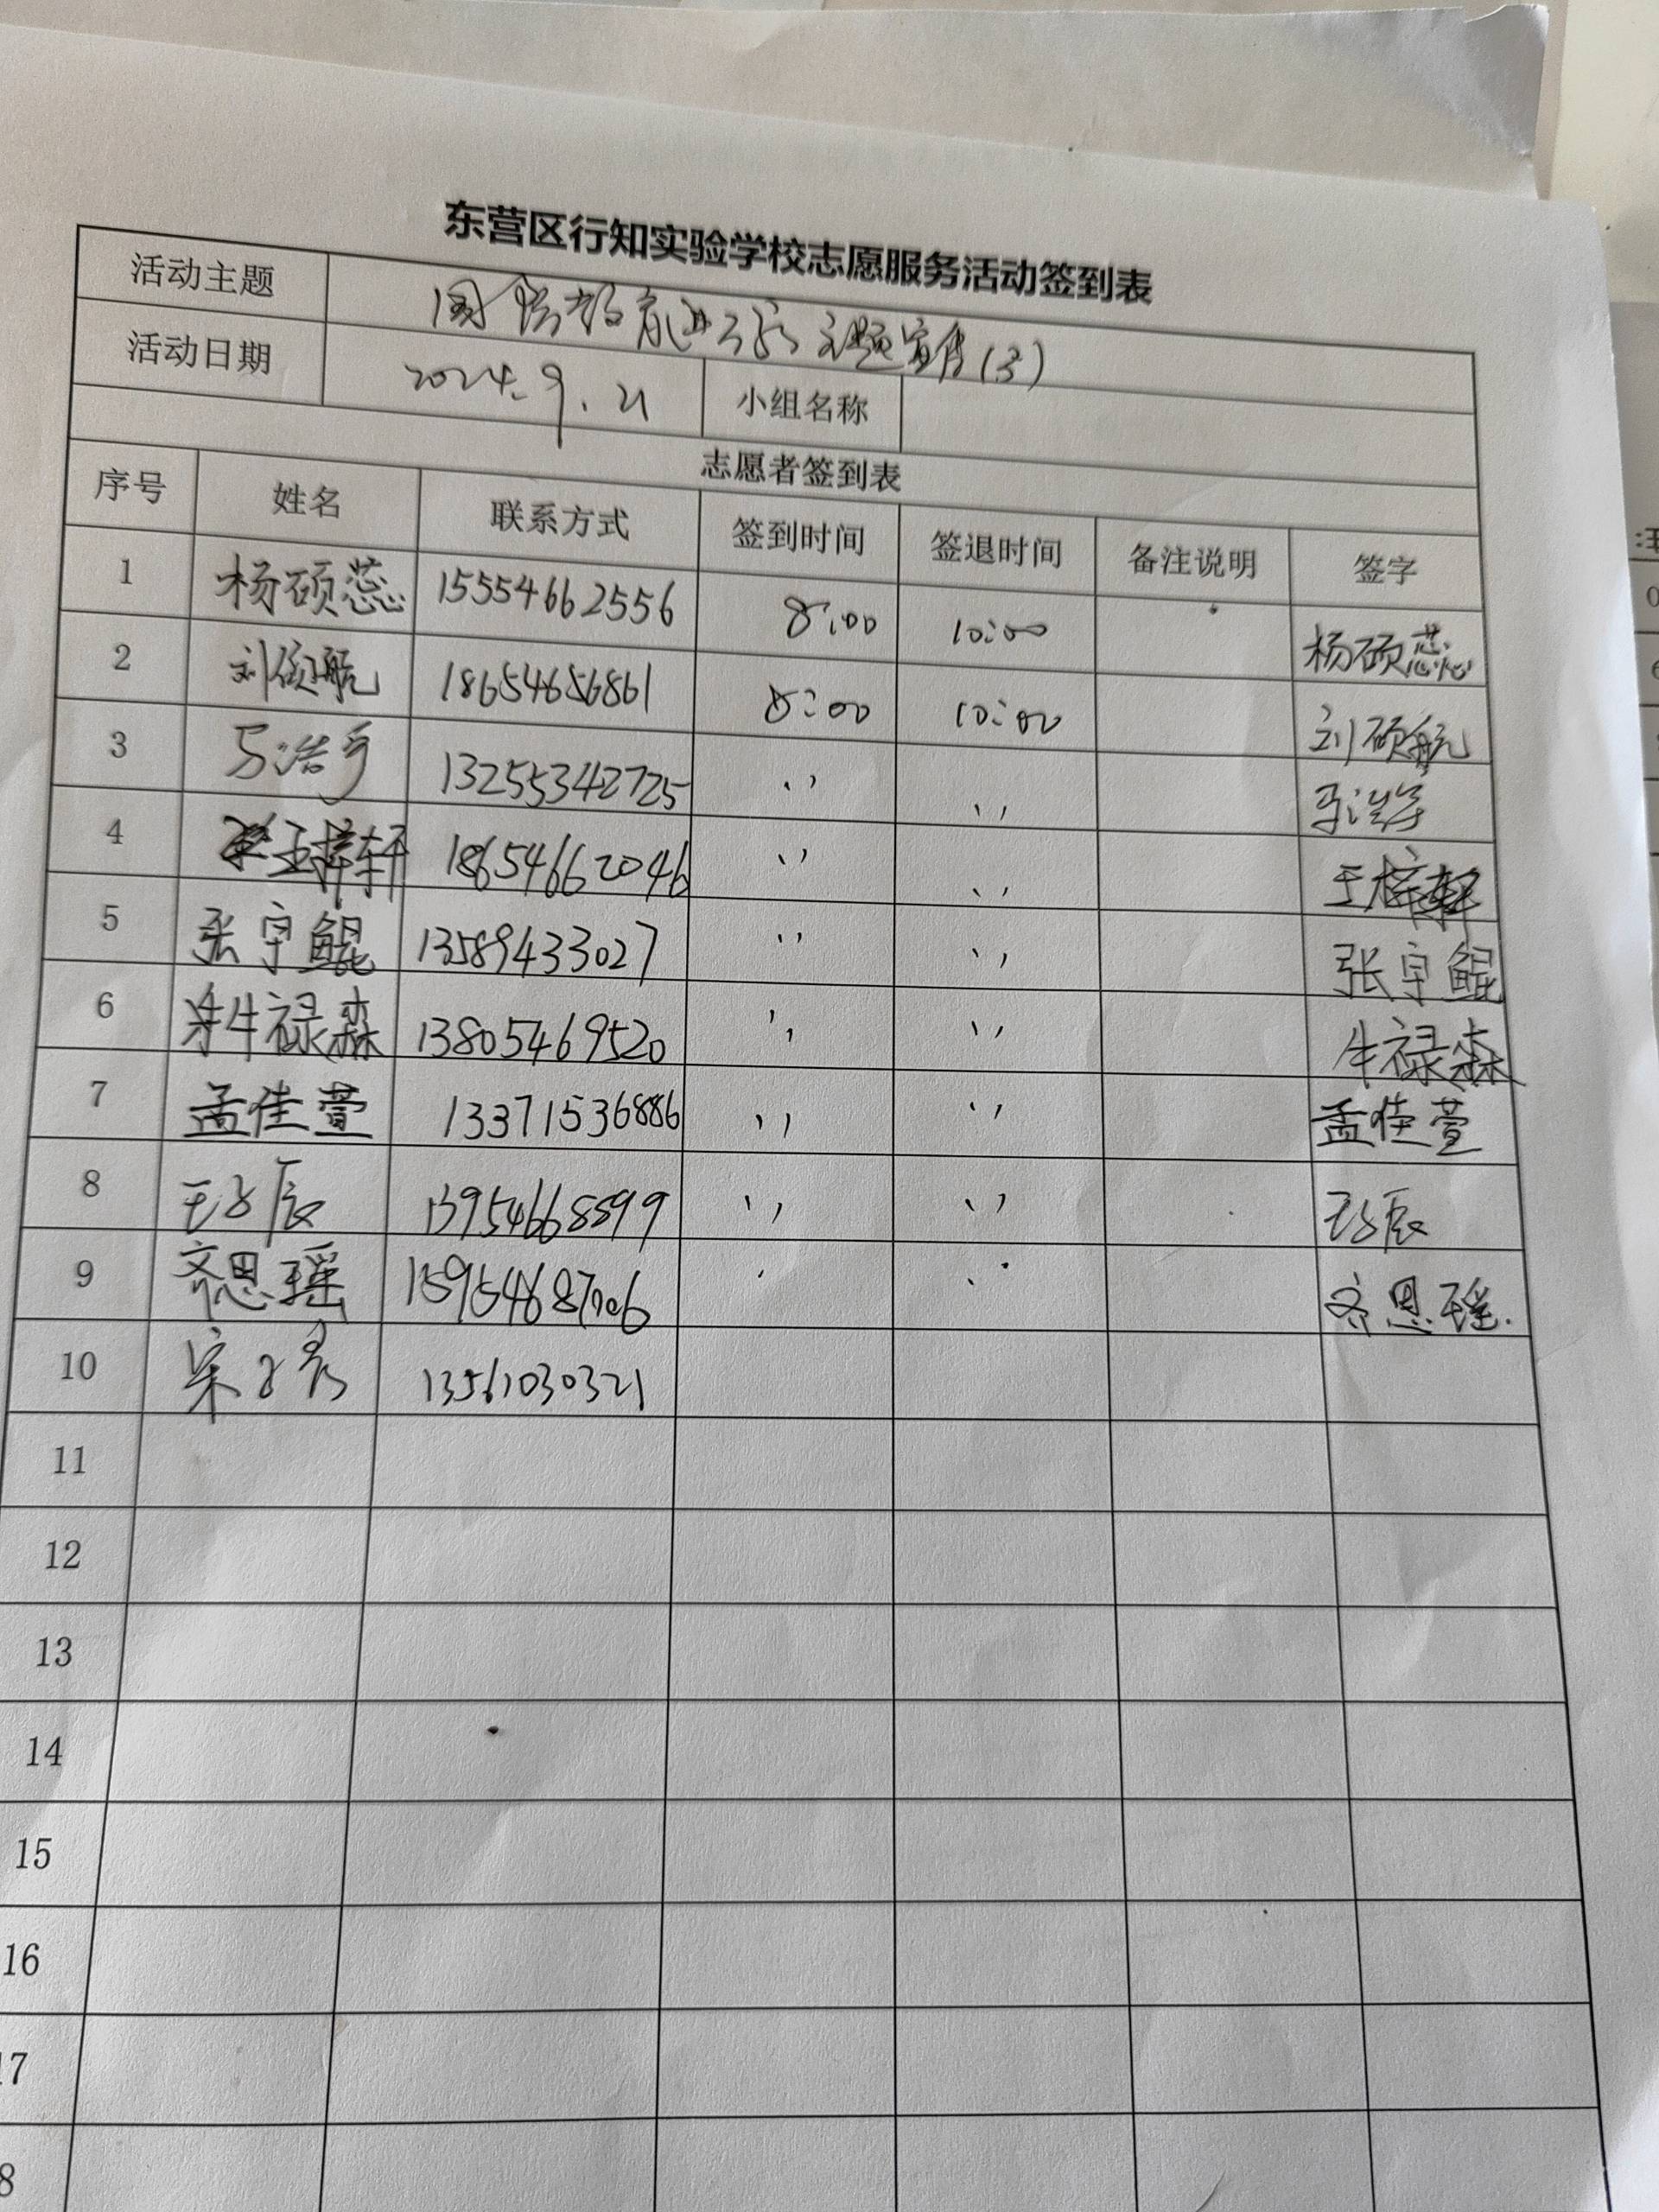 东营区行知实验学校志愿服务活动签到表
活动主题 国防教育进万家主题宣传(3)
活动日期 2024.9.21 小组名称
志愿者签到表
序号 姓名 联系方式 签到时间 签退时间 备注说明 签字
1 杨硕蕊 15554662556 8:00 10:00 杨硕蕊
2 刘硕航 18654656861 8:00 10:00 刘硕航
3 马浩宇 13255342725 〃 〃 马浩宇
4 王梓轩 18654662046 〃 〃 王梓轩
5 张宇鲲 13589433027 〃 〃 张宇鲲
6 牛禄森 13805469520 〃 〃 牛禄森
7 孟佳萱 13371536886 〃 〃 孟佳萱
8 王子辰 13954668899 〃 〃 王子辰
9 齐思瑶 15954687006 〃 齐思瑶.
10 13561030321
11
12
13
14
15
16
17
8